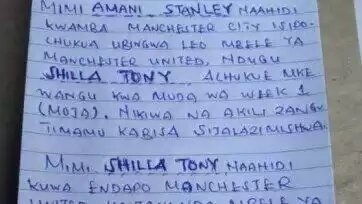 MIMI AMANI STANLEY NAAHIDI
KWAMBA MANCHESTER CITY ISIPO-
CHUKUA UBINGWA LEO MBELE YA
MANCHESTER UNITED, NDUGU
SHILLA TONY ACHUKUE MKE
WANGU KWA MUDA WA WEEK 1
(MOJA). NIKIWA NA AKILI ZANGU
TIMAMU KABISA SIJALAZIMISHWA.
MIMI SHILLA TONY NAAHIDI
KUWA ENDAPO MANCHESTER
MBELE YA